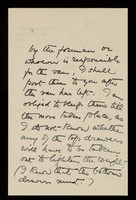 by the foreman or
whoever is responsible
for the van, I shall
post them to you after
the van has left. I am
obliged to keep them till
the move takes place, as
I do not know whether
any of the top drawers
will have to be taken
out to lighten the weight
(I know that the bottom
drawers must.)